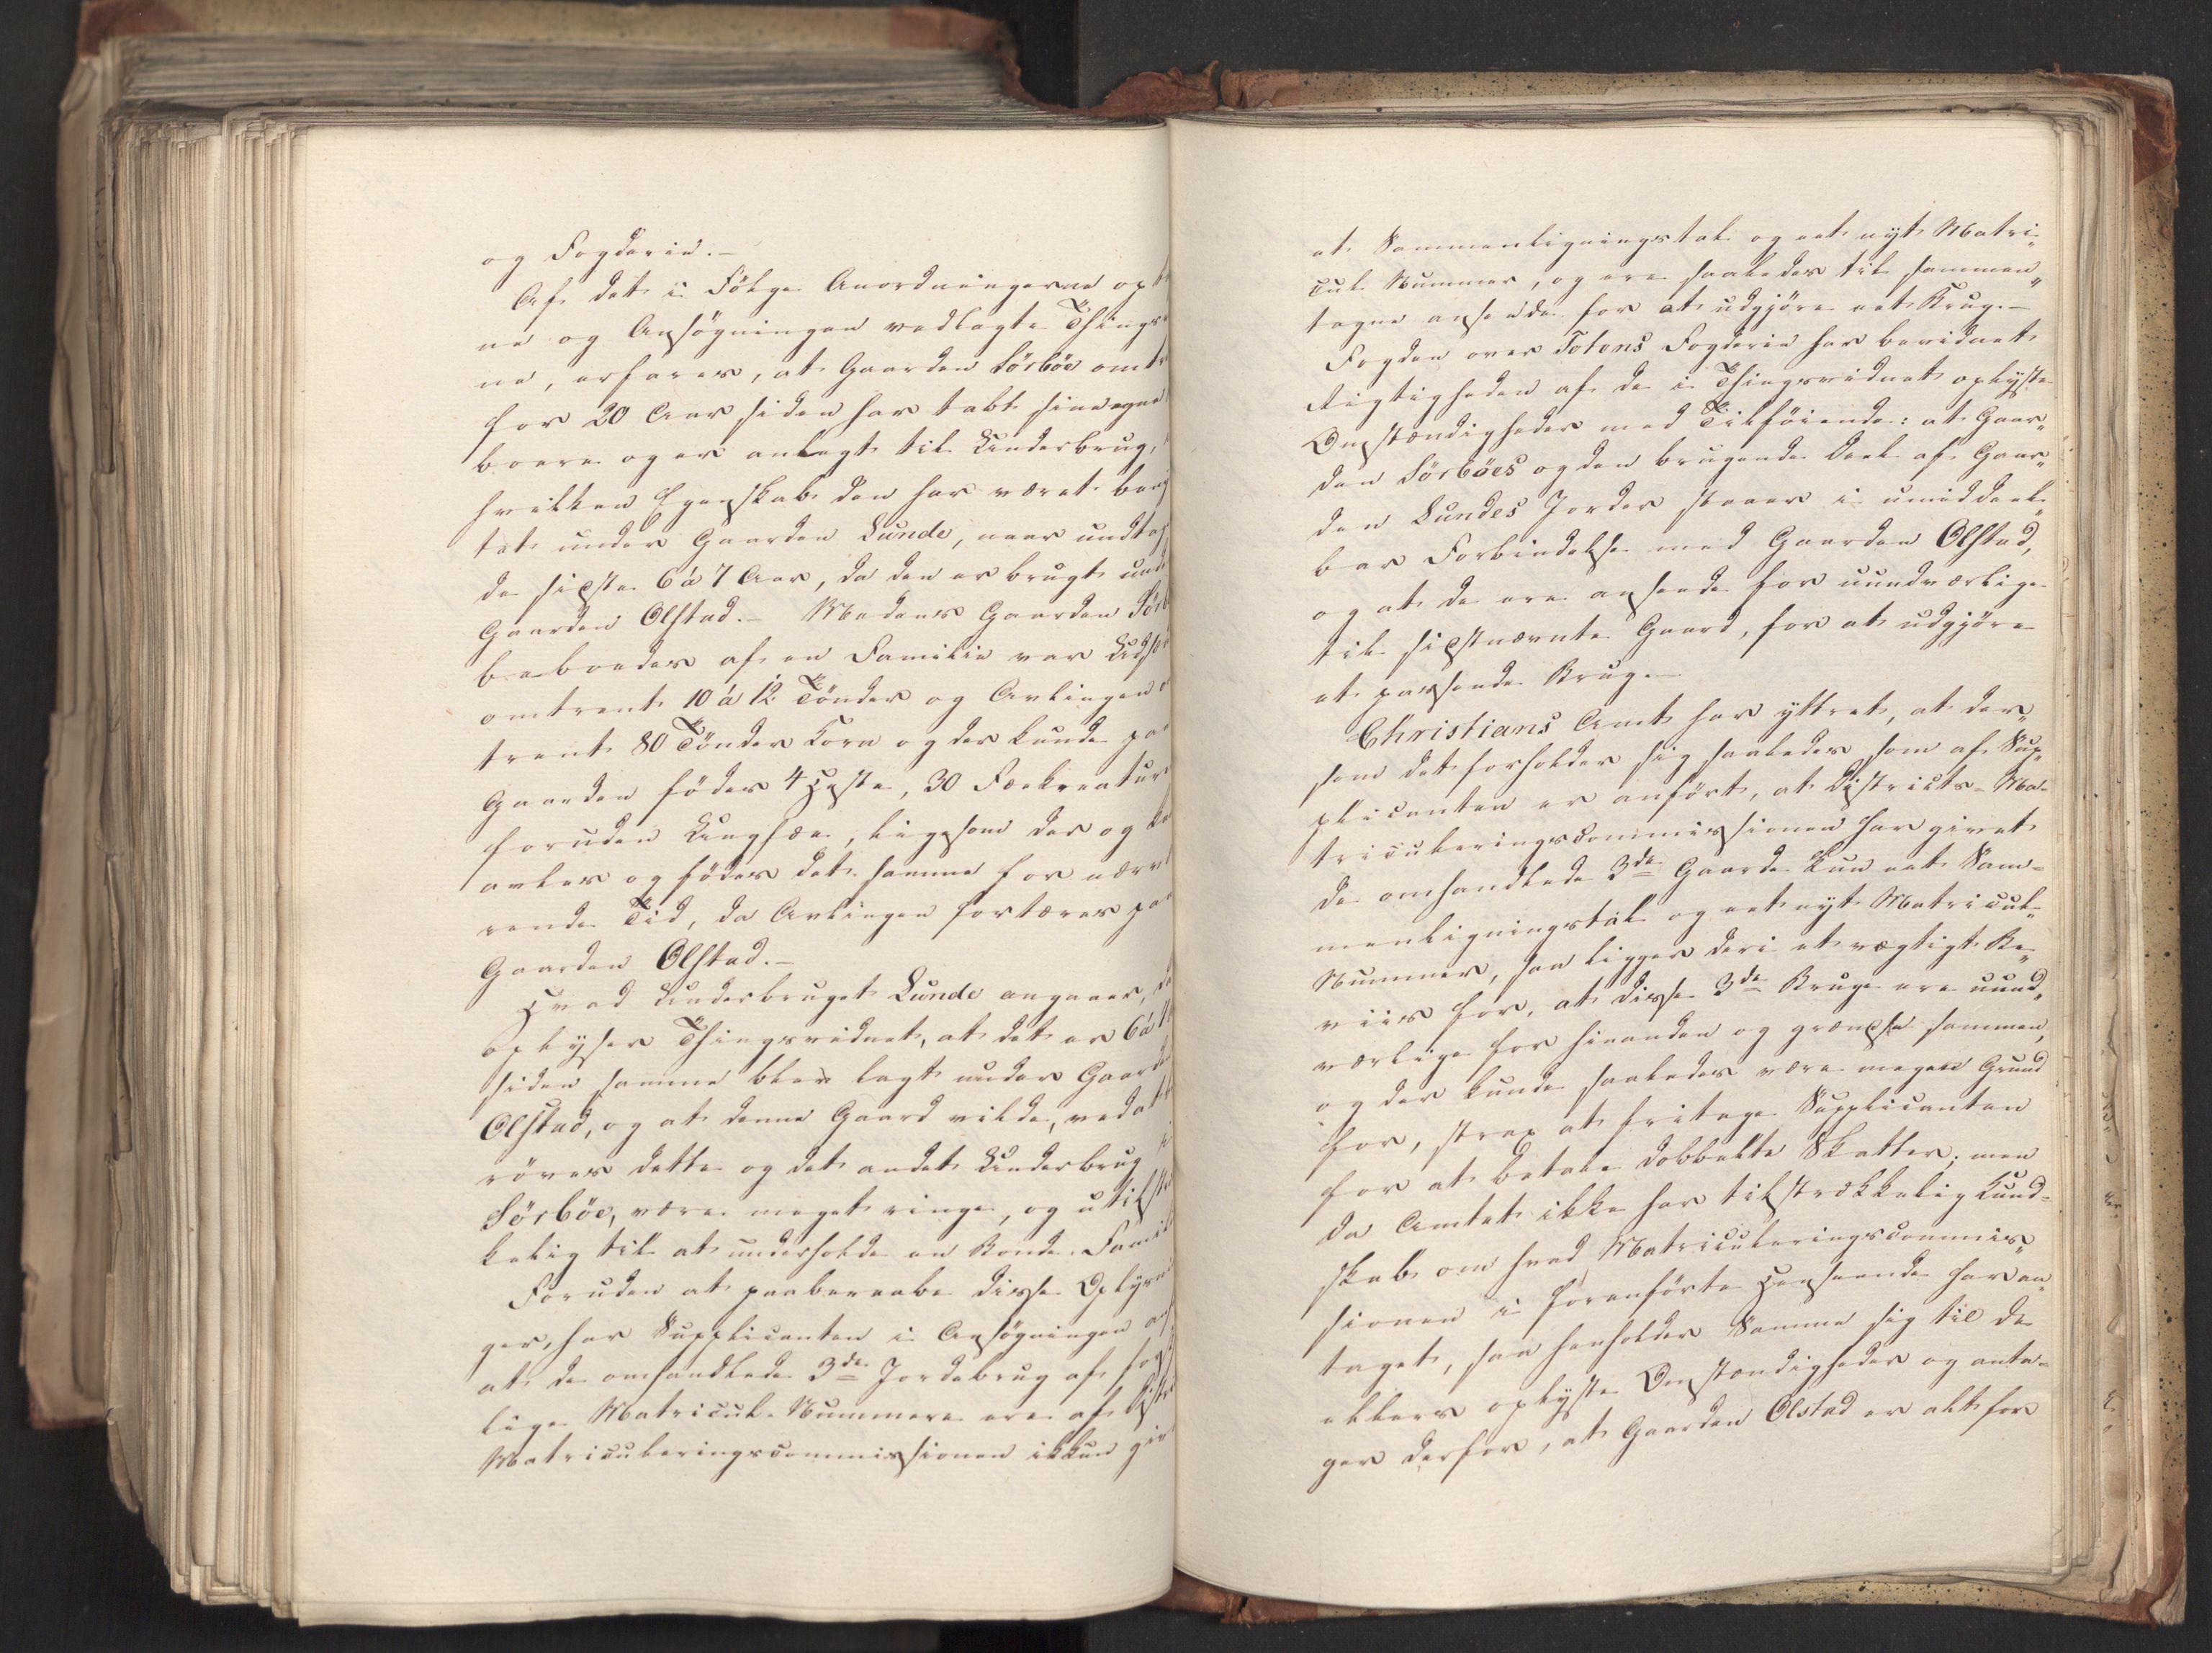 og Fogderie.–
Af det i Følge Anordningerne op
ne og Ansøgningen vedlagte Things
ne, erfares, at Gaarden Sörböe omt
for 20 Aar siden har tabt sine egne
boere og er anlagt til Underbrug,
hvilken Egenskab den har været beny
tet under Gaarden Lunde, naar undtag
de sidste 6 à 7 Aar, da den er brugt und
Gaarden Olstad.– Medens Gaarden Sörb
beboedes af en Familie var Udsæ
omtrent 10 à 12 Tönder og Avlingen o
trent 80 Tönder Korn og der kunde paa
Gaarden födes 4 Heste, 30 Fækreature
foruden Ungfæe, ligesom der og
avles og födes det samme for nærv
rende Tid, da Avlingen fortæres paa
Gaarden Olstad.–
Hvad Underbruget Lunde angaaer, da
oplyser Thingsvidnet, at det er 6 à
siden samme blev lagt under Gaarde
Olstad, og at denne Gaard vilde, ved at
röves dette og det andet Underbrug
Sörböe, være meget ringe, og utilstr
kelig til at underholde en Bonde-Famil
Foruden at paaberaabe disse Oplysni
ger, har Supplicanten i Ansøgningen an
at de omhandlede 3de Jordebrug af for
lige Matricul-Nummere ere af Distr
Matriculeringscommissionen ikkun giv
et Sammenligningstal og eet nyt Matri„
cul Nummer, og ere saaledes til sammen„
tagne ansede for at udgjöre eet Brug.–
Fogden over Totens Fogderie har bevidnet
Rigtigheden af de i Thingsvidnet oplyste
Omstændigheder med Tilföiende: at Gaar„
den Sörböes og den brugende Deel af Gaar„
den Lundes Jorder staaer i umiddel„
bar Forbindelse med Gaarden Olstad,
og at de ere ansende for uundværlige
til sidstnævnte Gaard, for at udgjöre
et passende Brug.–
Christians Amt har yttret, at der„
som det forholder sig saaledes som af Sup„
plicanten er anfört, at Districts-Ma-
triculeringscommissionen har givet
de omhandlede 3de Gaarde kun eet Sam-
menligningstal og eet nyt Matricul„
Nummer, saa ligger deri et vægtigt Be„
viis for, at disse 3de Bruge ere uund„
værlige for hinanden og grændse sammen,
og der kunde saaledes være megen Grund
for, strax at fritage Supplicanten
for at betale dobbelte Skatter; men
da Amtet ikke har tilstrækkelig Kund-
skab om hvad Matriculeringscommis„
sionen i foranförte Henseende har an„
taget, saa henholder Samme sig til de
ellers oplyste Omstændigheder og anta-
ger derfor, at Gaarden Olstad er alt for